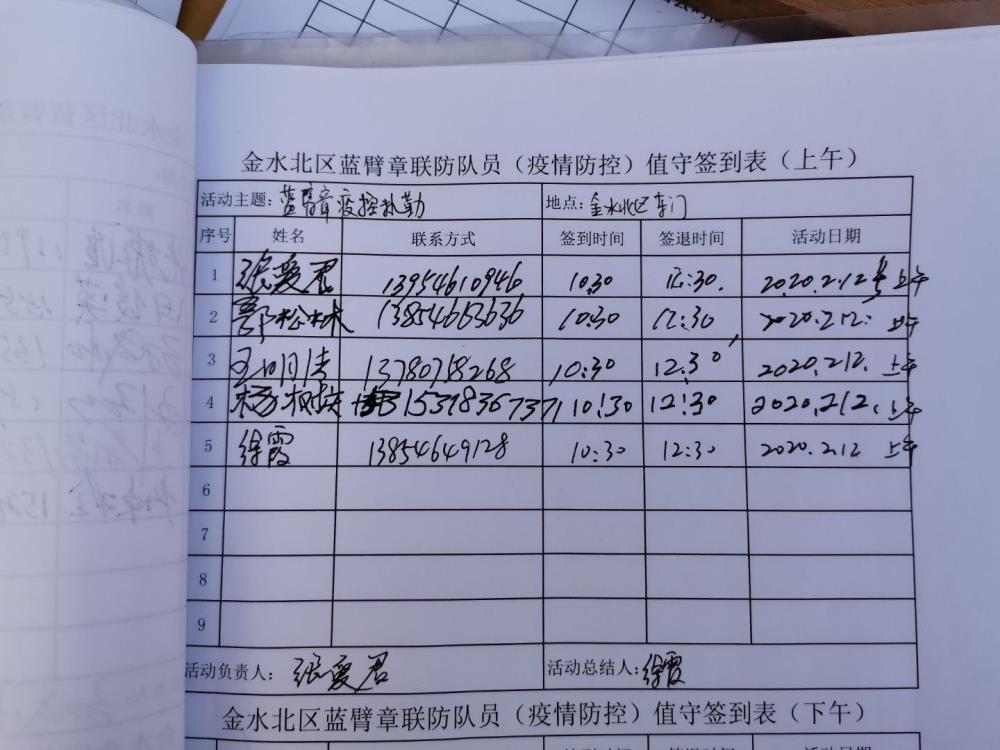 金水北区蓝臂章联防队员（疫情防控）值守签到表（上午）
活动主题：蓝臂章疫控执勤 地点：金水北区车门
序号 姓名 联系方式 签到时间 签退时间 活动日期
1 张爱君 13954610946 10:30 12:30. 2020.2.12 上午
2 郭松林 13854663636 10:30 12:30 2020.2.12. 上午
3 王明法 13780718268 10:30 12:30 2020.2.12. 上午
4 杨 15318367371 10:30 12:30 2020.2.12. 上午
5 徐霞 13854649128 10:30 12:30 2020.2.12 上午
6
7
8
9
活动负责人：张爱君 活动总结人：徐霞
金水北区蓝臂章联防队员（疫情防控）值守签到表（下午）